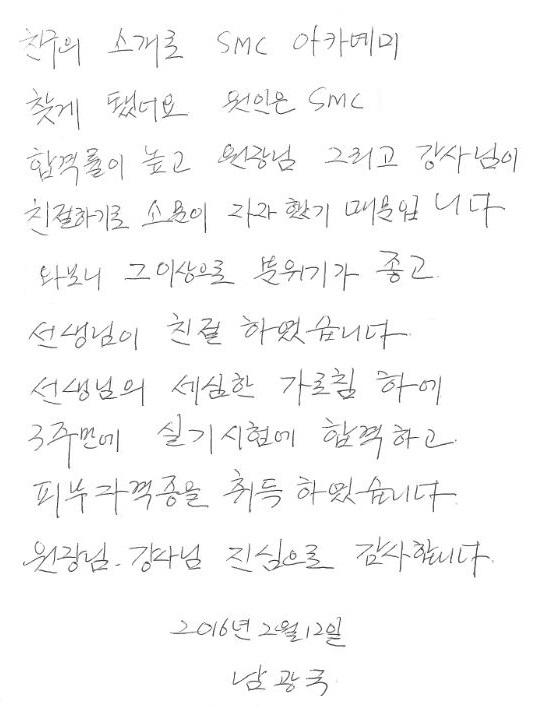 친구의 소개로 SMC 아카데미
찾게 됐너요 원인은 SMC
합격률이 높고 원장님 그리고 강사님이
친절하기로 소문이 자자 했기 때문입 니다
와보니 그이상으로 분위기가 좋고
선생님이 친절 하였습니다
선생님의 세심한 가르침 하에
3주만에 실기시험에 합격하고
피부자격증을 취득하였습니다
원장님. 강사님 진심으로 감사합니다.
2016년 2월 12일
남광국